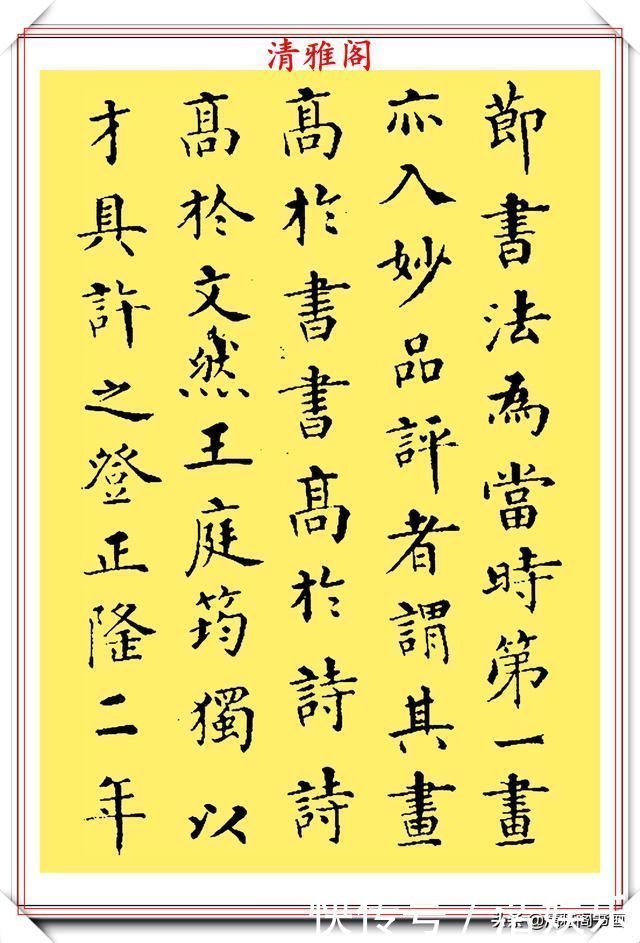 清雅阁
節書法為當時第一畫
亦入妙品評者謂其畫
高於書書高於詩詩
高於文然王庭筠獨以
才具許之登正隆二年
快传号 /